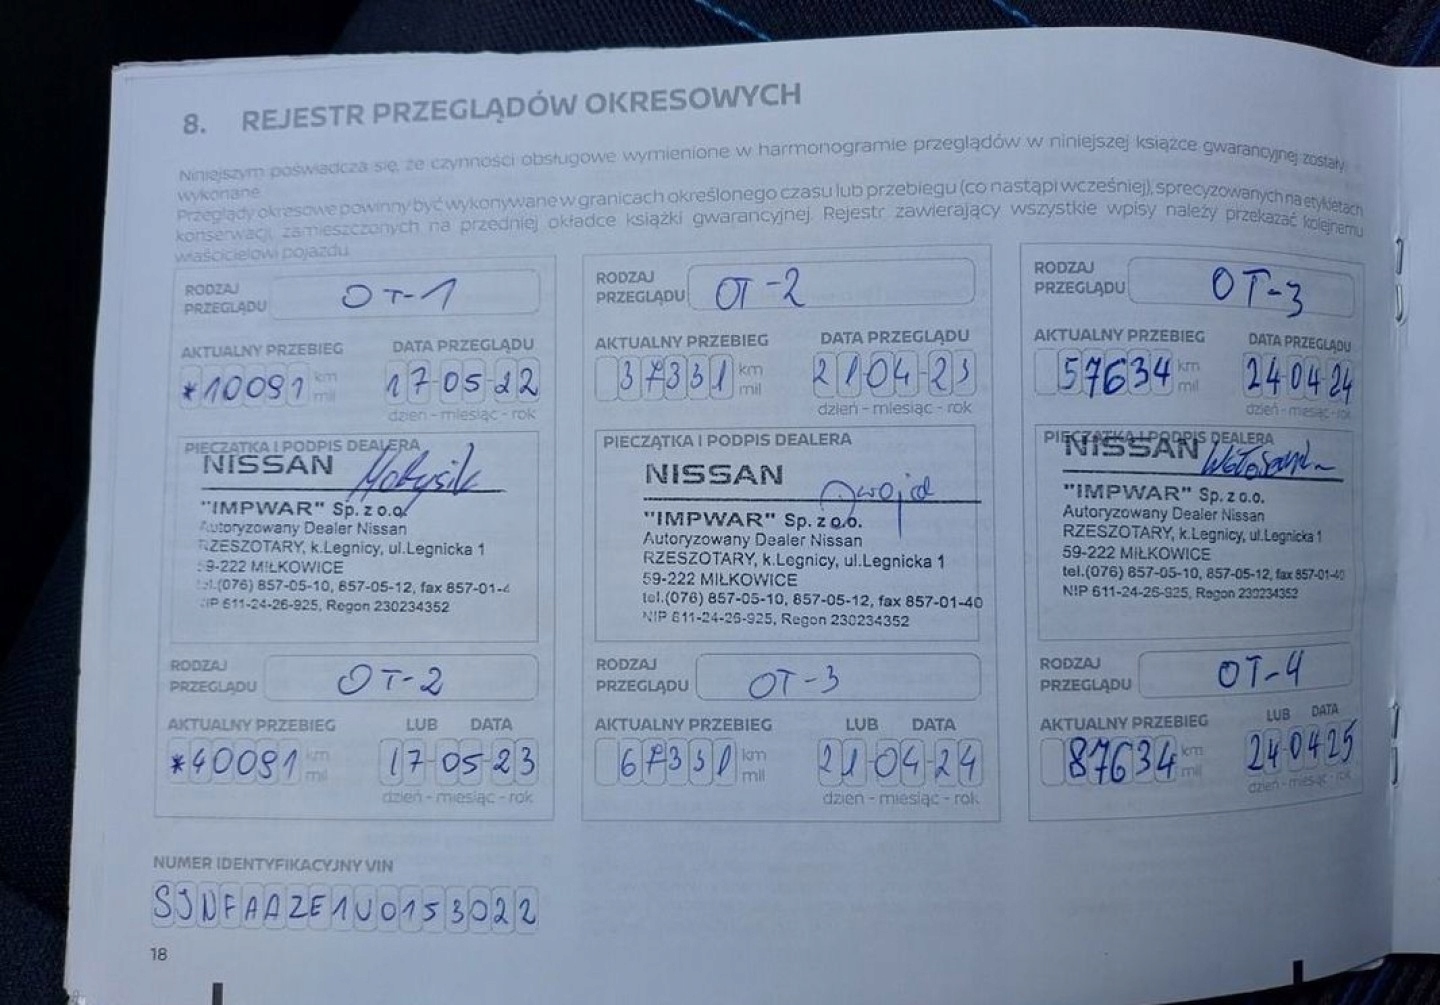 8. REJESTR PRZEGLĄDÓW OKRESOWYCH
Niniejszym poświadcza się, że czynności obsługowe wymienione w harmonogramie przeglądów w niniejszej książce gwarancyjnej zostały
wykonane.
Przeglądy okresowe powinny być wykonywane w granicach określonego czasu lub przebiegu (co nastąpi wcześniej), sprecyzowanych na etykietach
konserwacji, zamieszczonych na przedniej okładce książki gwarancyjnej. Rejestr zawierający wszystkie wpisy należy przekazać kolejnemu
właścicielowi pojazdu.
RODZAJ
PRZEGLĄDU OT-1
AKTUALNY PRZEBIEG DATA PRZEGLĄDU
*10091 km
mil
17-05-22
dzień - miesiąc - rok
PIECZĄTKA I PODPIS DEALERA
NISSAN
"IMPWAR" Sp. z o.o.
Autoryzowany Dealer Nissan
RZESZOTARY, k.Legnicy, ul.Legnicka 1
59-222 MIŁKOWICE
tel.(076) 857-05-10, 857-05-12, fax 857-01-4
NIP 611-24-26-925, Regon 230234352
RODZAJ
PRZEGLĄDU OT-2
AKTUALNY PRZEBIEG LUB DATA
*40091 km
mil
17-05-23
dzień - miesiąc - rok
RODZAJ
PRZEGLĄDU OT-2
AKTUALNY PRZEBIEG DATA PRZEGLĄDU
37331 km
mil
21-04-23
dzień - miesiąc - rok
PIECZĄTKA I PODPIS DEALERA
NISSAN
"IMPWAR" Sp. z o.o.
Autoryzowany Dealer Nissan
RZESZOTARY, k.Legnicy, ul.Legnicka 1
59-222 MIŁKOWICE
tel.(076) 857-05-10, 857-05-12, fax 857-01-40
NIP 611-24-26-925, Regon 230234352
RODZAJ
PRZEGLĄDU OT-3
AKTUALNY PRZEBIEG LUB DATA
67331 km
mil
21-04-24
dzień - miesiąc - rok
RODZAJ
PRZEGLĄDU OT-3
AKTUALNY PRZEBIEG DATA PRZEGLĄDU
57634 km
mil
24-04-24
dzień - miesiąc - rok
PIECZĄTKA I PODPIS DEALERA
NISSAN
"IMPWAR" Sp. z o.o.
Autoryzowany Dealer Nissan
RZESZOTARY, k.Legnicy, ul.Legnicka 1
59-222 MIŁKOWICE
tel.(076) 857-05-10, 857-05-12, fax 857-01-40
NIP 611-24-26-925, Regon 230234352
RODZAJ
PRZEGLĄDU OT-4
AKTUALNY PRZEBIEG LUB DATA
87634 km
mil
24-04-25
dzień - miesiąc - rok
NUMER IDENTYFIKACYJNY VIN
SJNFAAZE1U0153022
18